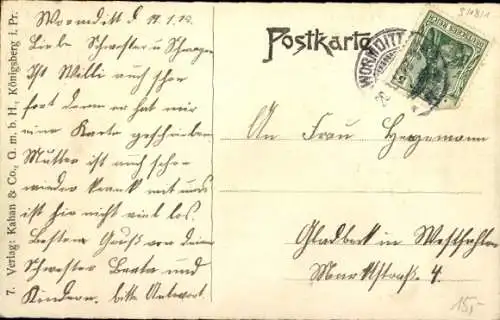 Wormditt d 17.1.12.
Liebe Schwester u. Schwager
Ist Willi auch schon
fort denn er hat mir
eine Karte geschrieben.
Mutter ist auch sehr
wieder krank mit uns
ist hir nicht viel los.
Besten Gruß von deine
Schwester Beata und
Kindern. bitte Antwort.
7. Verlag: Kahan & Co., G. m. b. H., Königsberg i. Pr.
Postkarte
WORMDITT
DEUTSCHES REICH
An Frau Hegemann
Gladbeck in Westfahlen
Marktstraß. 4.
15,-